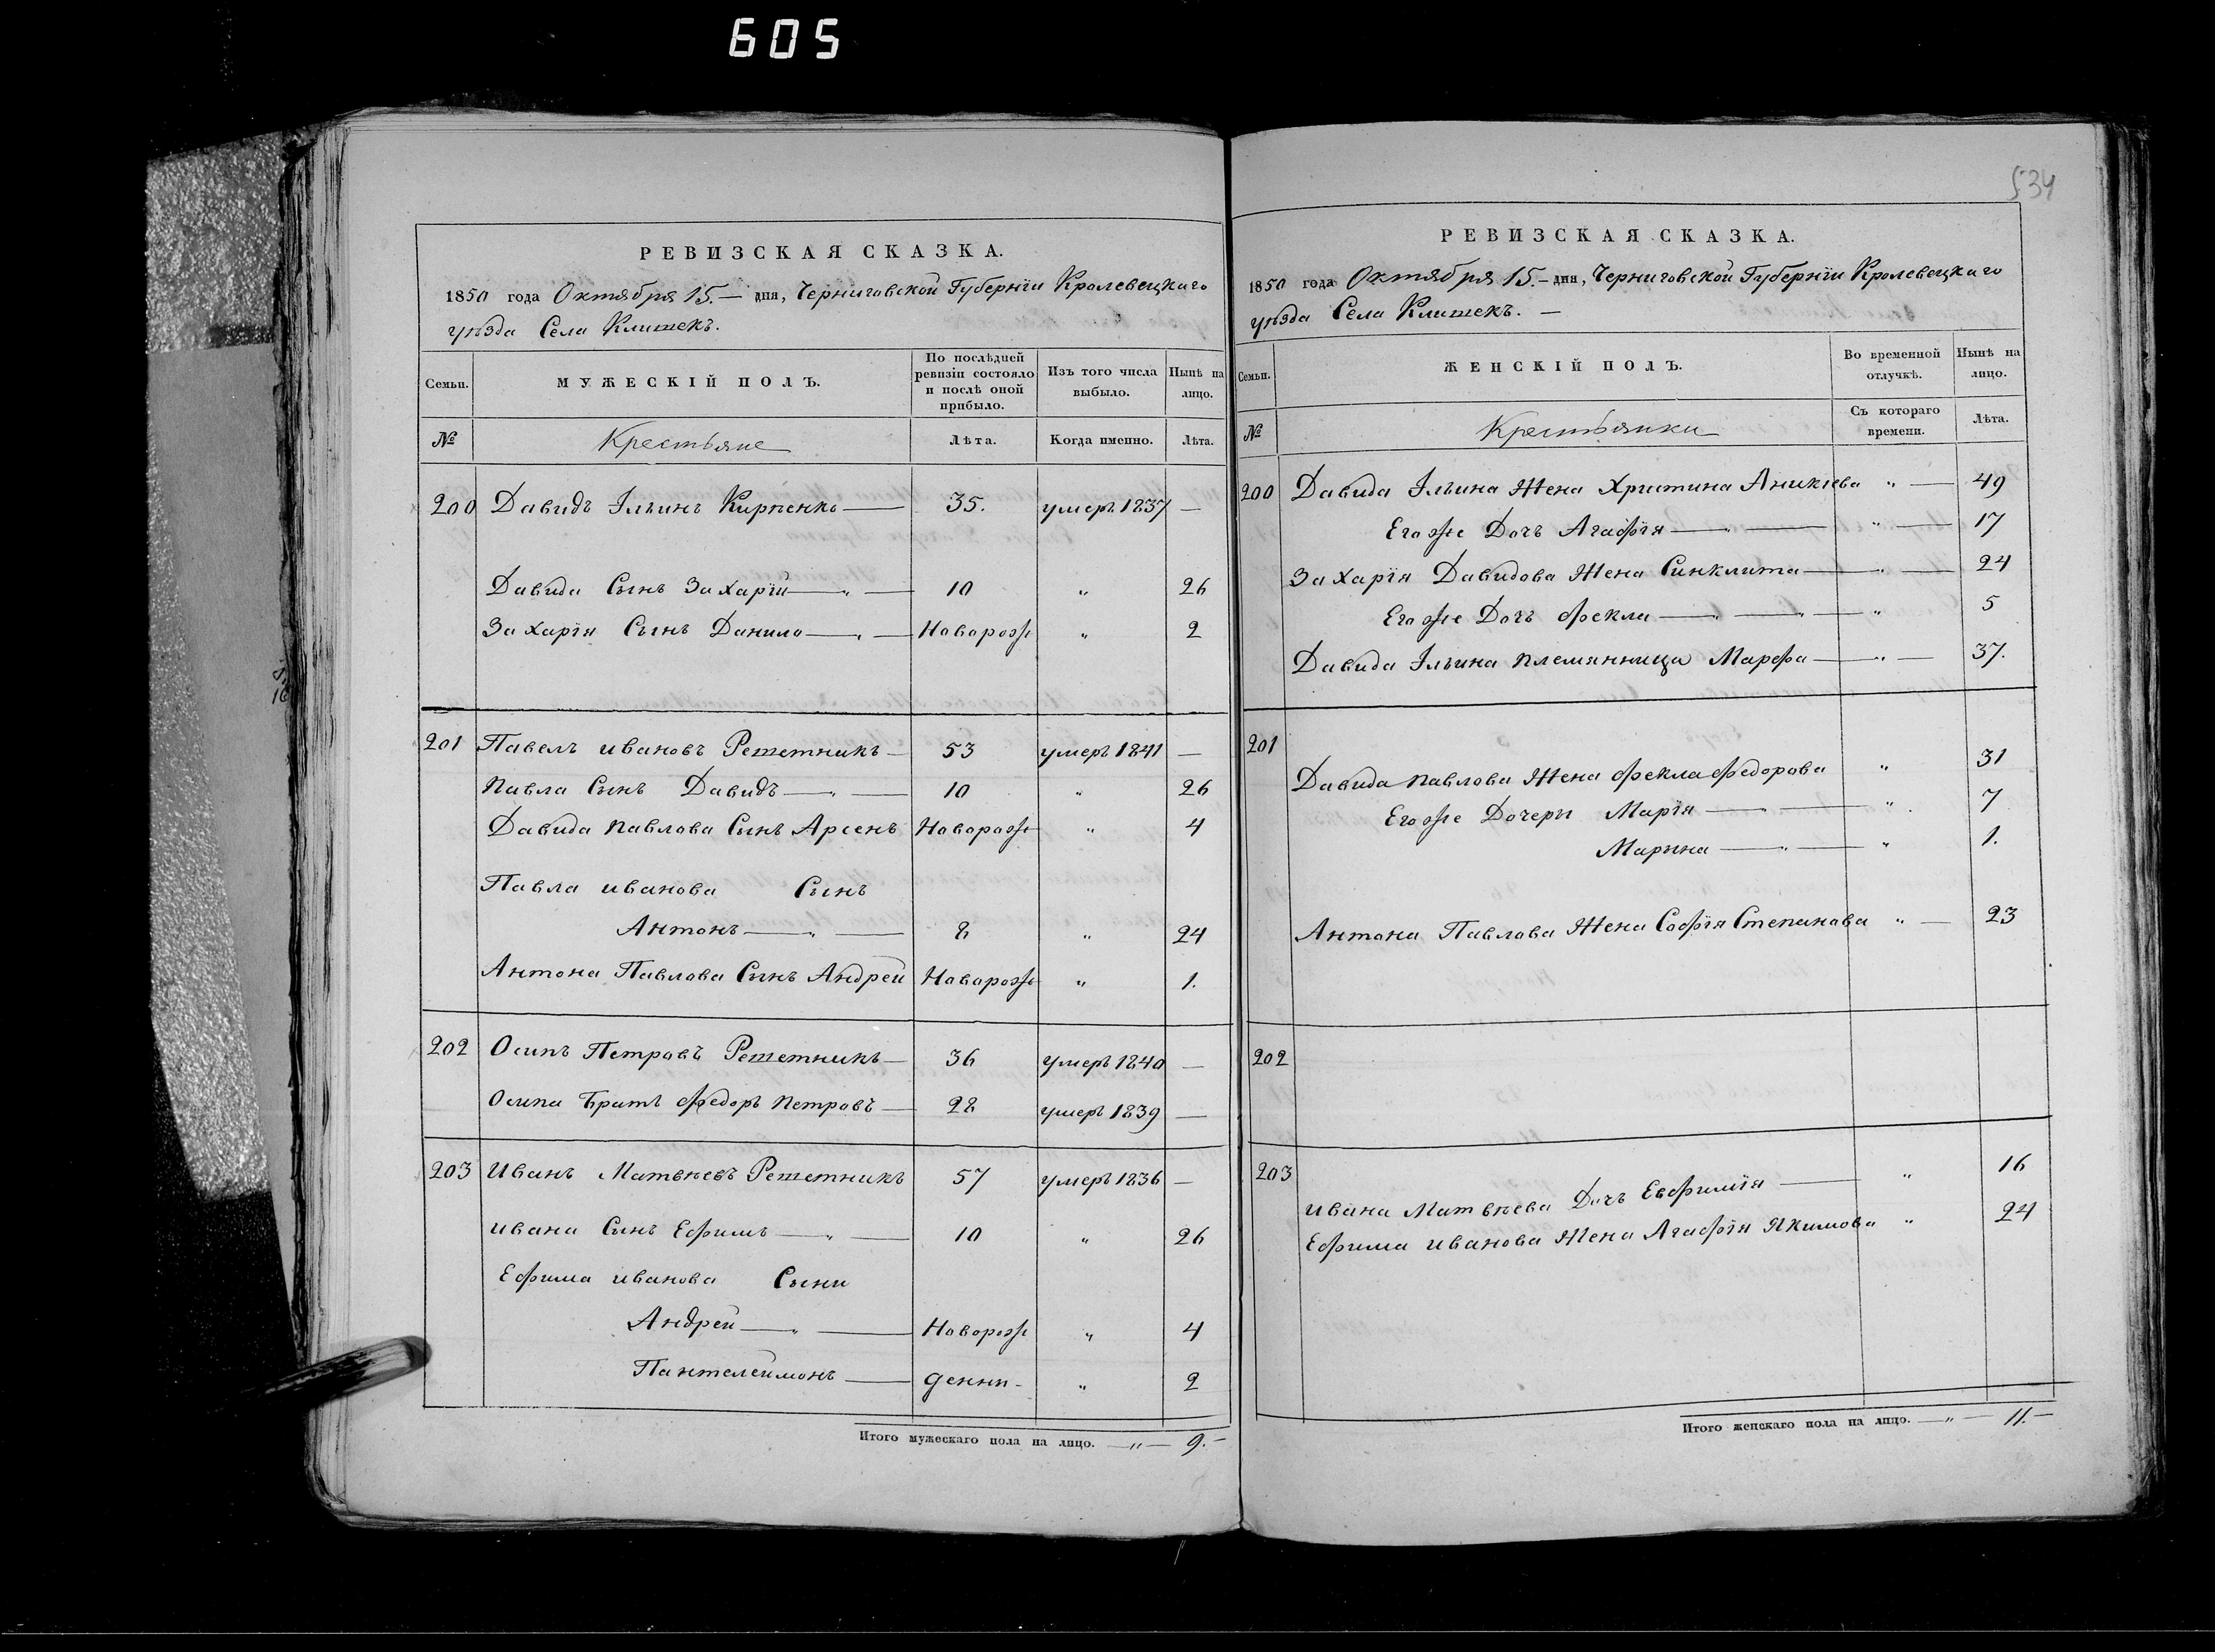 605
534
РЕВИЗСКАЯ СКАЗКА.
1850 года Октября 15.— дня, Черниговской Губернїи Кролевецкаго
уѣзда Села Клишекъ.
Семьи. МУЖЕСКІЙ ПОЛЪ. По послѣдней ревизіи состояло и послѣ оной прибыло. Изъ того числа выбыло. Нынѣ на лицо.
№ Крестьяне Лѣта. Когда именно. Лѣта.
200 Давидъ Ильинъ Кирпенко — 35. умеръ 1837 —
Давида Сынъ Захарїй — „ — 10 „ 26
Захарїя Сынъ Данило — „ — Новорож „ 2
201 Павелъ Ивановъ Решетникъ — 53 умеръ 1841 —
Павла Сынъ Давидъ — „ — 10 „ 26
Давида Павлова Сынъ Арсенъ Новорож „ 4
Павла Иванова Сынъ
Антонъ — „ — 8 „ 24
Антона Павлова Сынъ Андрей Новорож „ 1.
202 Осипъ Петровъ Решетникъ — 36 умеръ 1840 —
Осипа Братъ Федоръ Петровъ — 28 умеръ 1839 —
203 Иванъ Матвѣевъ Решетникъ 57 умеръ 1836 —
Ивана Сынъ Ефимъ — „ — 10 „ 26
Ефима Иванова Сыни
Андрей — „ — Новорож „ 4
Пантелеймонъ — денни - „ 2
Итого мужескаго пола на лицо. — „ — 9.—
РЕВИЗСКАЯ СКАЗКА.
1850 года Октября 15.— дня, Черниговской Губернїи Кролевецкаго
уѣзда Села Клишекъ. —
Семьи. ЖЕНСКІЙ ПОЛЪ. Во временной отлучкѣ. Нынѣ на лицо.
№ Крестьянки Съ котораго времени. Лѣта.
200 Давида Ильина Жена Христина Аникіева „ — 49
Его же Дочъ Агафїя — „ — „ — 17
Захарїя Давидова Жена Синклита — „ — 24
Его же Дочъ Фекла — „ — „ 5
Давида Ильина племянница Марфа — „ — 37.
201
Давида Павлова Жена Фекла Федорова „ 31
Его же Дочери Марїя — „ — „ 7
Марина — „ — „ 1.
Антона Павлова Жена Софїя Степанова „ — 23
202
203
Ивана Матвѣева Дочъ Евфимїя — „ 16
Ефима Иванова Жена Агафїя Якимова „ 24
Итого женскаго пола на лицо. — „ — 11.—